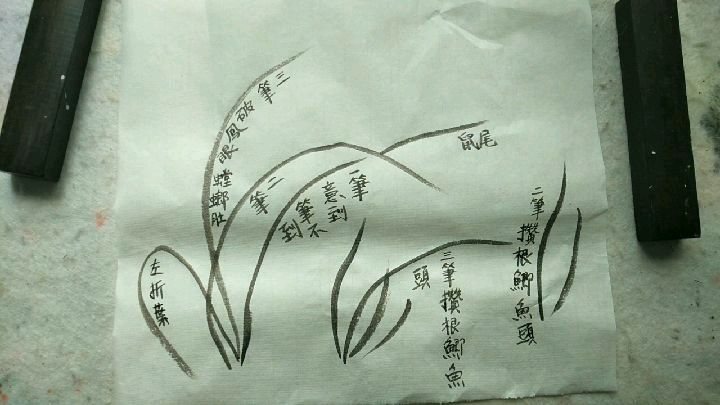 三筆破鳳眼螳螂肚
二筆
一筆
意到
筆不
到
鼠尾
左折葉
三筆攢根鯽魚
頭
二筆攢根鯽魚頭